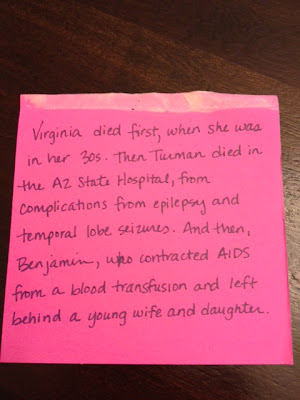 Virginia died first, when she was
in her 30s. Then Turman died in
the AZ State Hospital, from
complications from epilepsy and
temporal lobe seizures. And then,
Benjamin, who contracted AIDS
from a blood transfusion and left
behind a young wife and daughter.